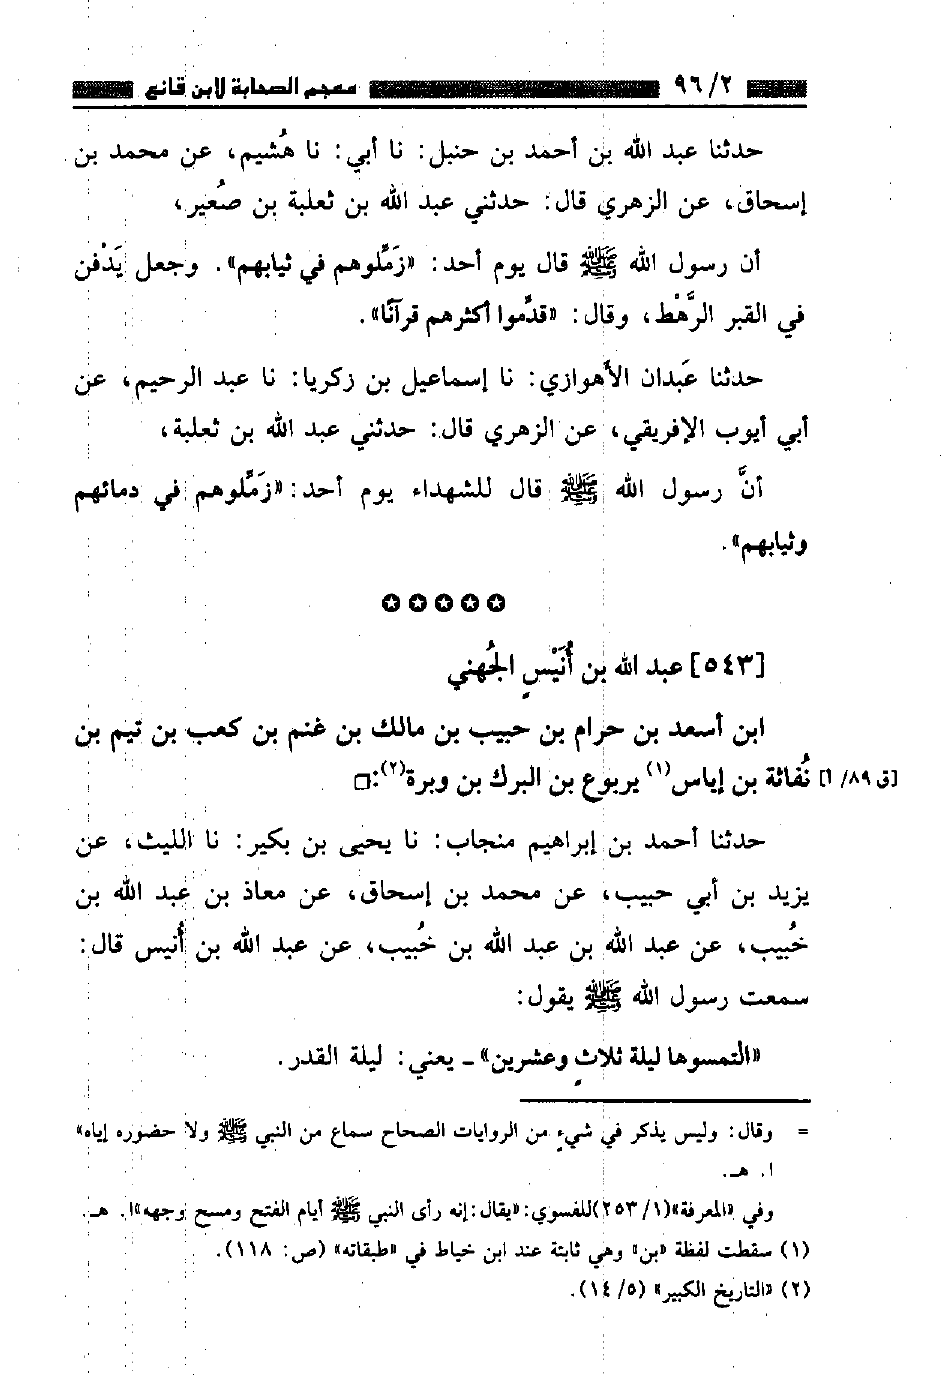 ٩٦/٢ معجم الصحابة لابن قانع
حدثنا عبد الله بن أحمد بن حنبل: نا أبي: نا هُشيم، عن محمد بن
إسحاق، عن الزهري قال: حدثني عبد الله بن ثعلبة بن صُعير،
أن رسول الله ﷺ قال يوم أحد: «زَمِّلوهم في ثيابهم». وجعل يَدْفن
في القبر الرَّهْط، وقال: «قدِّموا أكثرهم قرآنًا».
حدثنا عَبدان الأهوازي: نا إسماعيل بن زكريا: نا عبد الرحيم، عن
أبي أيوب الإفريقي، عن الزهري قال: حدثني عبد الله بن ثعلبة،
أنَّ رسول الله ﷺ قال للشهداء يوم أحد: «زَمِّلوهم في دمائهم
وثيابهم».
✪ ✪ ✪ ✪ ✪
[٥٤٣] عبد الله بن أُنَيْسٍ الجُهني
ابن أسعد بن حرام بن حبيب بن مالك بن غنم بن كعب بن تيم بن
[ق ٨٩/ أ] نُفاثة بن إياس(١) يربوع بن البرك بن وبرة(٢):□
حدثنا أحمد بن إبراهيم منجاب: نا يحيى بن بكير: نا الليث، عن
يزيد بن أبي حبيب، عن محمد بن إسحاق، عن معاذ بن عبد الله بن
خُبيب، عن عبد الله بن عبد الله بن خُبيب، عن عبد الله بن أُنيس قال:
سمعت رسول الله ﷺ يقول:
«التمسوها ليلة ثلاثٍ وعشرين» ـ يعني: ليلة القدر.
= وقال: وليس يذكر في شيءٍ من الروايات الصحاح سماع من النبي ﷺ ولا حضوره إياه»
ا. هـ.
وفي «المعرفة»(٢٥٣/١)للفسوي: «يقال: إنه رأى النبي ﷺ أيام الفتح ومسح وجهه»ا. هـ.
(١) سقطت لفظة «بن» وهي ثابتة عند ابن خياط في «طبقاته» (ص: ١١٨).
(٢) «التاريخ الكبير» (١٤/٥).